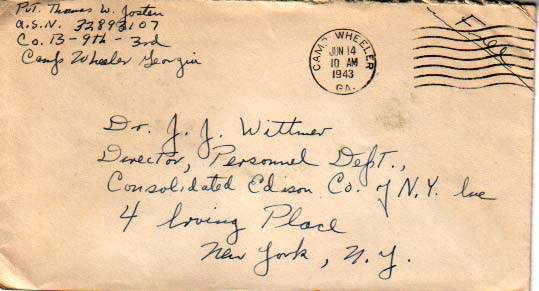 Pvt. Thomas W. Josten
a.s.n. 32893107
Co. B - 9th - 3rd
Camp Wheeler Georgia
CAMP WHEELER
JUN 14
10 AM
1943
GA.
Free
Dr. J. J. Wittmer
Director, Personnel Dept.,
Consolidated Edison Co. of N.Y. Inc
4 Irving Place
New York, N.Y.